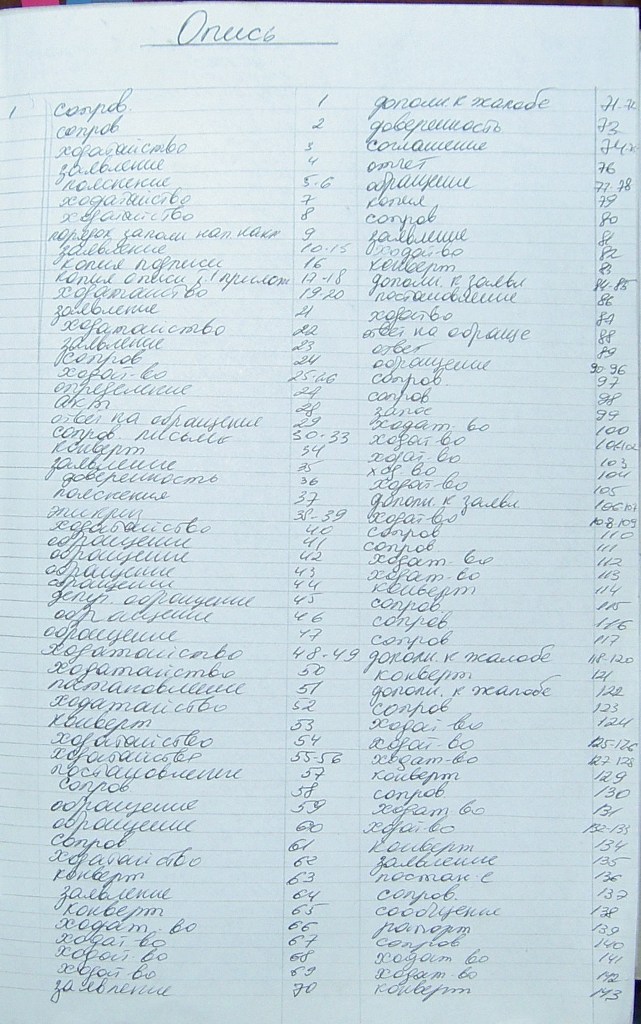 Опись
1 сопров. 1
сопров 2
ходатайство 3
заявление 4
пояснение 5-6
ходатайство 7
ходатайство 8
порядок заполн нап. накт 9
заявление 10-15
копия подписи 16
копия описи 17-18
ходатайство 19-20
заявление 21
ходатайство 22
заявление 23
сопров 24
ходат-во 25-26
определение 27
акт 28
ответ на обращение 29
сопров. письмо 30-33
конверт 34
заявление 35
доверенность 36
пояснения 37
эпикриз 38-39
ходатайство 40
обращение 41
обращение 42
обращение 43
обращение 44
депут. обращение 45
обращение 46
обращение 47
ходатайство 48-49
ходатайство 50
постановление 51
ходатайство 52
конверт 53
ходатайство 54
ходатайство 55-56
постановление 57
сопров 58
обращение 59
обращение 60
сопров 61
ходатайство 62
конверт 63
заявление 64
конверт 65
ходат-во 66
ходат-во 67
ходат-во 68
ходат-во 69
заявление 70
дополн к жалобе 71-72
доверенность 73
соглашение 74
отчет 76
обращение 77-78
копия 79
сопров 80
заявление 81
ходат-во 82
конверт 83
дополн. к заявл 84-85
постановление 86
ходатво 87
ответ на обраще 88
ответ 89
обращение 90-96
сопров. 97
сопров 98
запос 99
ходат-во 100
ходат-во 101-102
ходат-во 103
ход-во 104
ходат-во 105
дополн. к заявл 106-107
ходат-во 108-109
сопров 110
сопров 111
ходат-во 112
ходат-во 113
конверт 114
сопров 115
сопров 116
сопров 117
дополн. к жалобе 118-120
конверт 121
дополн. к жалобе 122
сопров 123
ходат-во 124
ходат-во 125-126
ходат-во 127-128
конверт 129
сопров 130
ходат во 131
ходат-во 132-133
конверт 134
заявление 135
постан-е 136
сопров. 137
сообщение 138
рапорт 139
сопров 140
ходат во 141
ходат-во 142
конверт 143